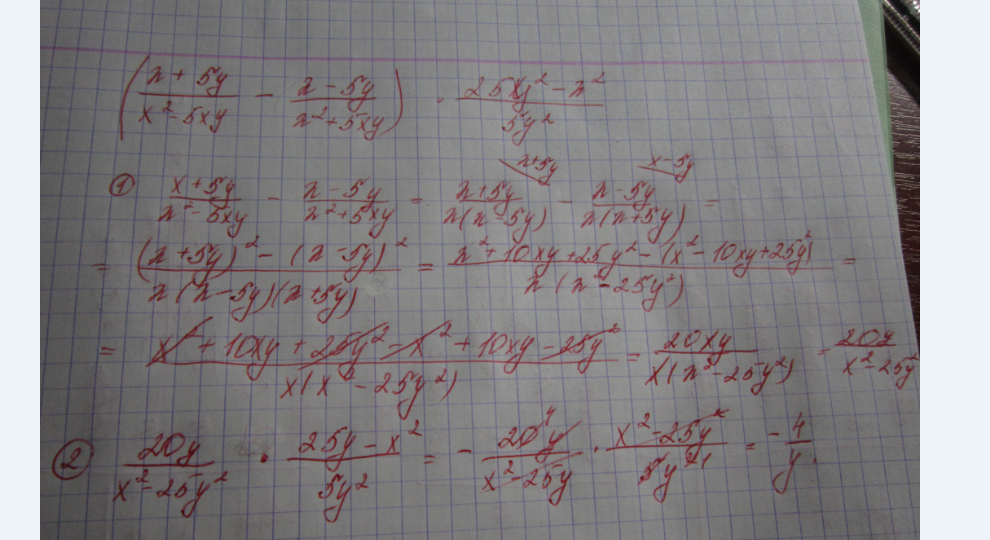 ((x + 5y)/(x² - 5xy) - (x - 5y)/(x² + 5xy)) · (25y² - x²)/(5y²)
x+5y x-5y
① (x + 5y)/(x² - 5xy) - (x - 5y)/(x² + 5xy) = (x+5y)/(x(x - 5y)) - (x - 5y)/(x(x+5y)) =
= ((x+5y)² - (x-5y)²)/(x(x-5y)(x+5y)) = (x² + 10xy + 25y² - (x² - 10xy + 25y²))/(x(x² - 25y²)) =
= (x² + 10xy + 25y² - x² + 10xy - 25y²)/(x(x² - 25y²)) = 20xy/(x(x² - 25y²)) = 20y/(x² - 25y²)
② 20y/(x² - 25y²) · (25y - x²)/(5y²) = - 20y/(x² - 25y) · (x² - 25y²)/(5y²) = - 4/y.